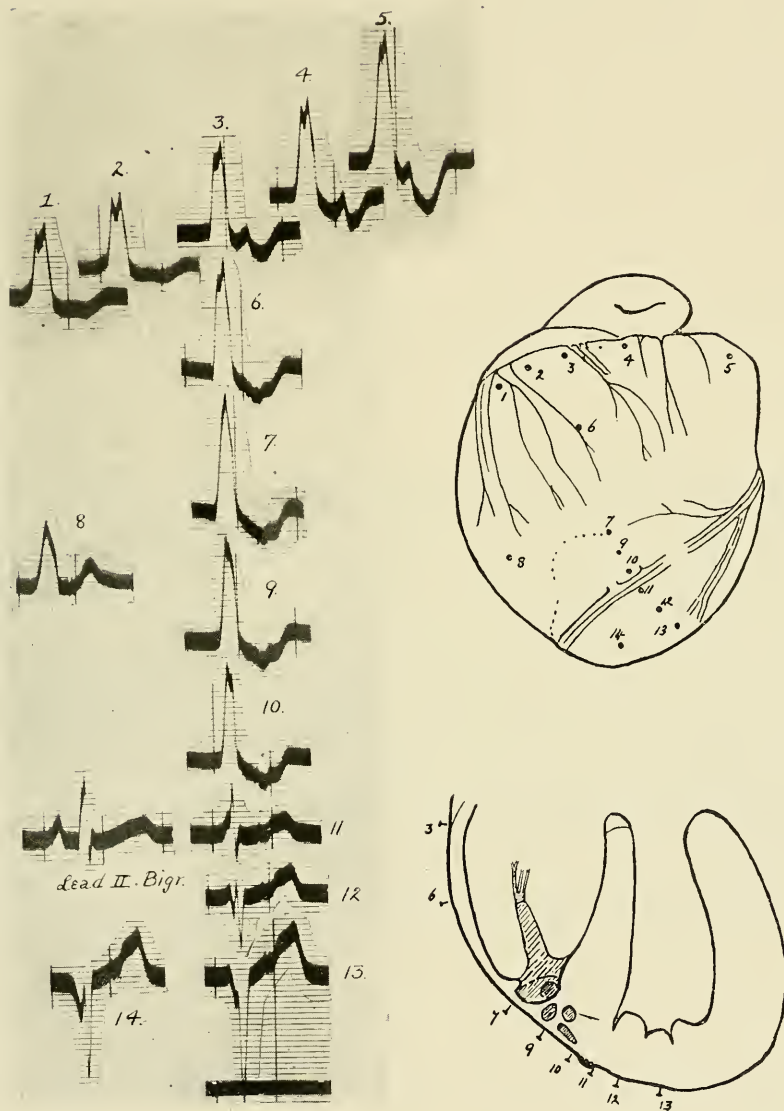 5.
4.
3.
2.
1.
6.
7.
8
9.
10.
11
Lead II. Bigr.
12
13.
14.
4
5
3
2
1
6
7
9
8
10
11
12
13
14
3
6
7
9
10
11
12
13